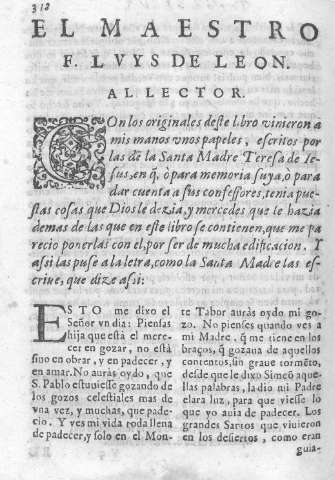 318
EL MAESTRO
F. LVYS DE LEON.
AL LECTOR.
COn los originales deste libro vinieron a
mis manos vnos papeles, escritos por
las de la Santa Madre Teresa de Ie-
sus, en q̃, ò para memoria suya, ò para
dar cuenta a sus confessores, tenia pue-
stas cosas que Dios le dezia, y mercedes que le hazia
demas de las que en este libro se contienen, que me pa
recio ponerlas con el, por ser de mucha edificacion. Y
assi las puse a la letra, como la Santa Madre las es-
criue, que dize assi:
ESTO me dixo el
Señor vn dia: Piensas
hija que està el mere-
cer en gozar, no està
sino en obrar, y en padecer, y
en amar. No auràs oydo, que
S. Pablo estuuiesse gozando de
los gozos celestiales mas de
vna vez, y muchas, que pade-
cio. Y ves mi vida toda llena
de padecer, y solo en el Mon-
te Tabor auràs oydo mi go-
zo. No pienses quando ves a
mi Madre, q̃ me tiene en los
braços, q̃ gozaua de aquellos
contentos, sin graue tormẽto,
desde que le dixo Simeõ aque-
llas palabras, la dio mi Padre
clara luz, para que viesse lo
que yo auia de padecer. Los
grandes Santos que viuieron
en los desiertos, como eran
guia-